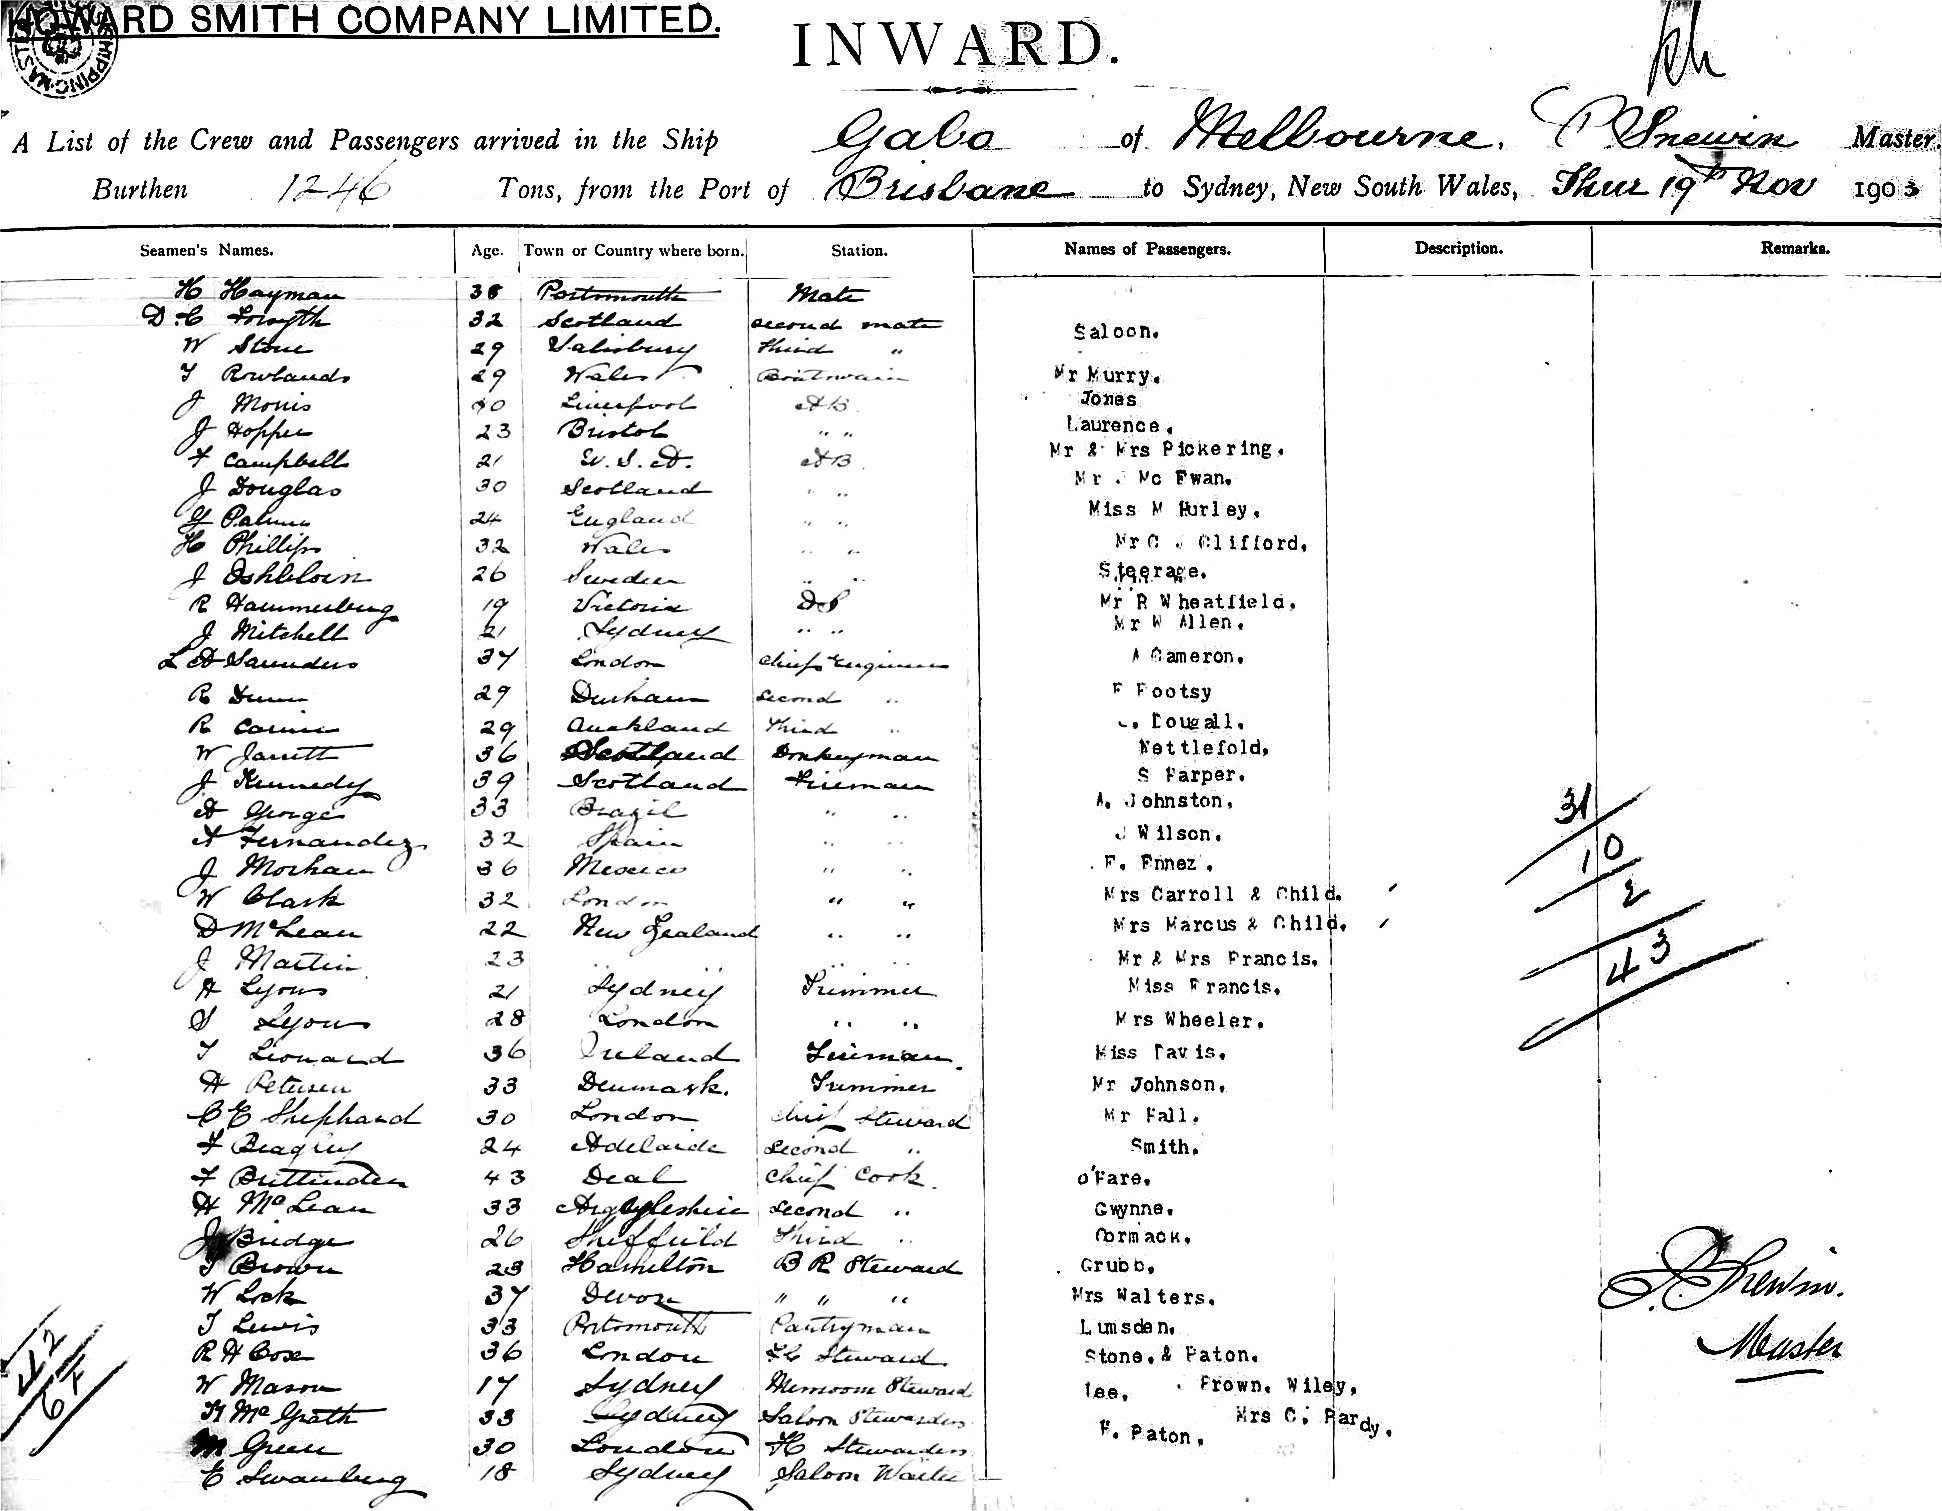 HOWARD SMITH COMPANY LIMITED.
INWARD.
A List of the Crew and Passengers arrived in the Ship Gabo of Melbourne. P Snewin Master.
Burthen 1246 Tons, from the Port of Brisbane to Sydney, New South Wales, Thur 19th Nov 1903
Seamen's Names. Age. Town or Country where born. Station. Names of Passengers. Description. Remarks.
H Hayman 38 Portsmouth Mate
D.C Forsyth 32 Scotland second mate
W Stone 29 Salisbury third "
T Rowlands 29 Wales Boatswain
J Morris 40 Liverpool AB
J Hopper 23 Bristol " "
F Campbell 21 U.S.A. AB
J Douglas 30 Scotland " "
G Palmer 24 England " "
H Phillips 32 Wales " "
J 26 Sweden " "
R Hammerberg 19 Victoria DS
J Mitchell 21 Sydney " "
L A Saunders 37 London chief Engineer
R Dunn 29 Durham second "
R 29 Auckland third "
W Jarrett 36 Scotland Donkeyman
J Kennedy 39 Scotland Fireman
A George 33 Brazil " "
A Fernandez 32 Spain " "
J Morhan 36 Mexico " "
W Clark 32 London " "
D McLean 22 New Zealand " "
J Martin 23 " " " "
A Lyons 21 Sydney Trimmer
S Lyons 28 London " "
T Leonard 36 Ireland Fireman.
H Petersen 33 Denmark. Trimmer
C E Shephard 30 London chief steward
F Beagley 24 Adelaide second "
F Buttenden 43 Deal chief cook.
A McLean 33 Argyleshire second "
J Bridge 26 Sheffield third "
T Brown 23 Hamilton B R Steward
W Lock 37 Devon " " "
T Lewis 33 Portsmouth Pantryman
R H Cox 36 London F C Steward
W Mason 17 Sydney Messroom Steward
H McGrath 33 Sydney Saloon Stewardess
M Green 30 London H Stewardess
E Swanberg 18 Sydney Saloon Waiter
42
6F
Saloon.
Mr Murry.
Jones
Laurence.
Mr & Mrs Pickering.
Mr J Mc Ewan.
Miss M Hurley.
Mr C J Clifford.
Steerage.
Mr R Wheatfield.
Mr W Allen.
A Cameron.
F Footsy
C. Dougall.
Nettlefold.
S Harper.
A. Johnston.
J Wilson.
F. Ennez.
Mrs Carroll & Child.
Mrs Marcus & Child.
Mr & Mrs Francis.
Miss Francis.
Mrs Wheeler.
Miss Davis.
Mr Johnson.
Mr Hall.
Smith.
O'Hare.
Gwynne.
Cormack.
Grubb.
Mrs Walters.
Lumsden.
Stone. & Paton.
Lee. Brown. Wiley.
Mrs C. Pardy.
H. Paton.
31
10
2
43
P. Snewin.
Master